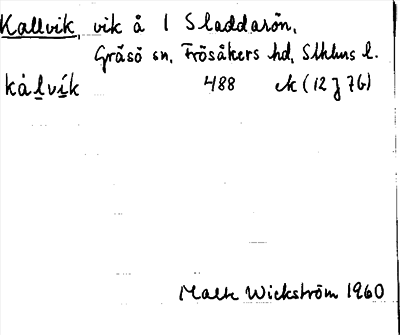 Kallvik, vik å 1 Sladdarön,
Gräsö sn, Frösåkers hd, Sthlms l.
kàlvík 488 ek (12 J 7b)
Malte Wickström 1960